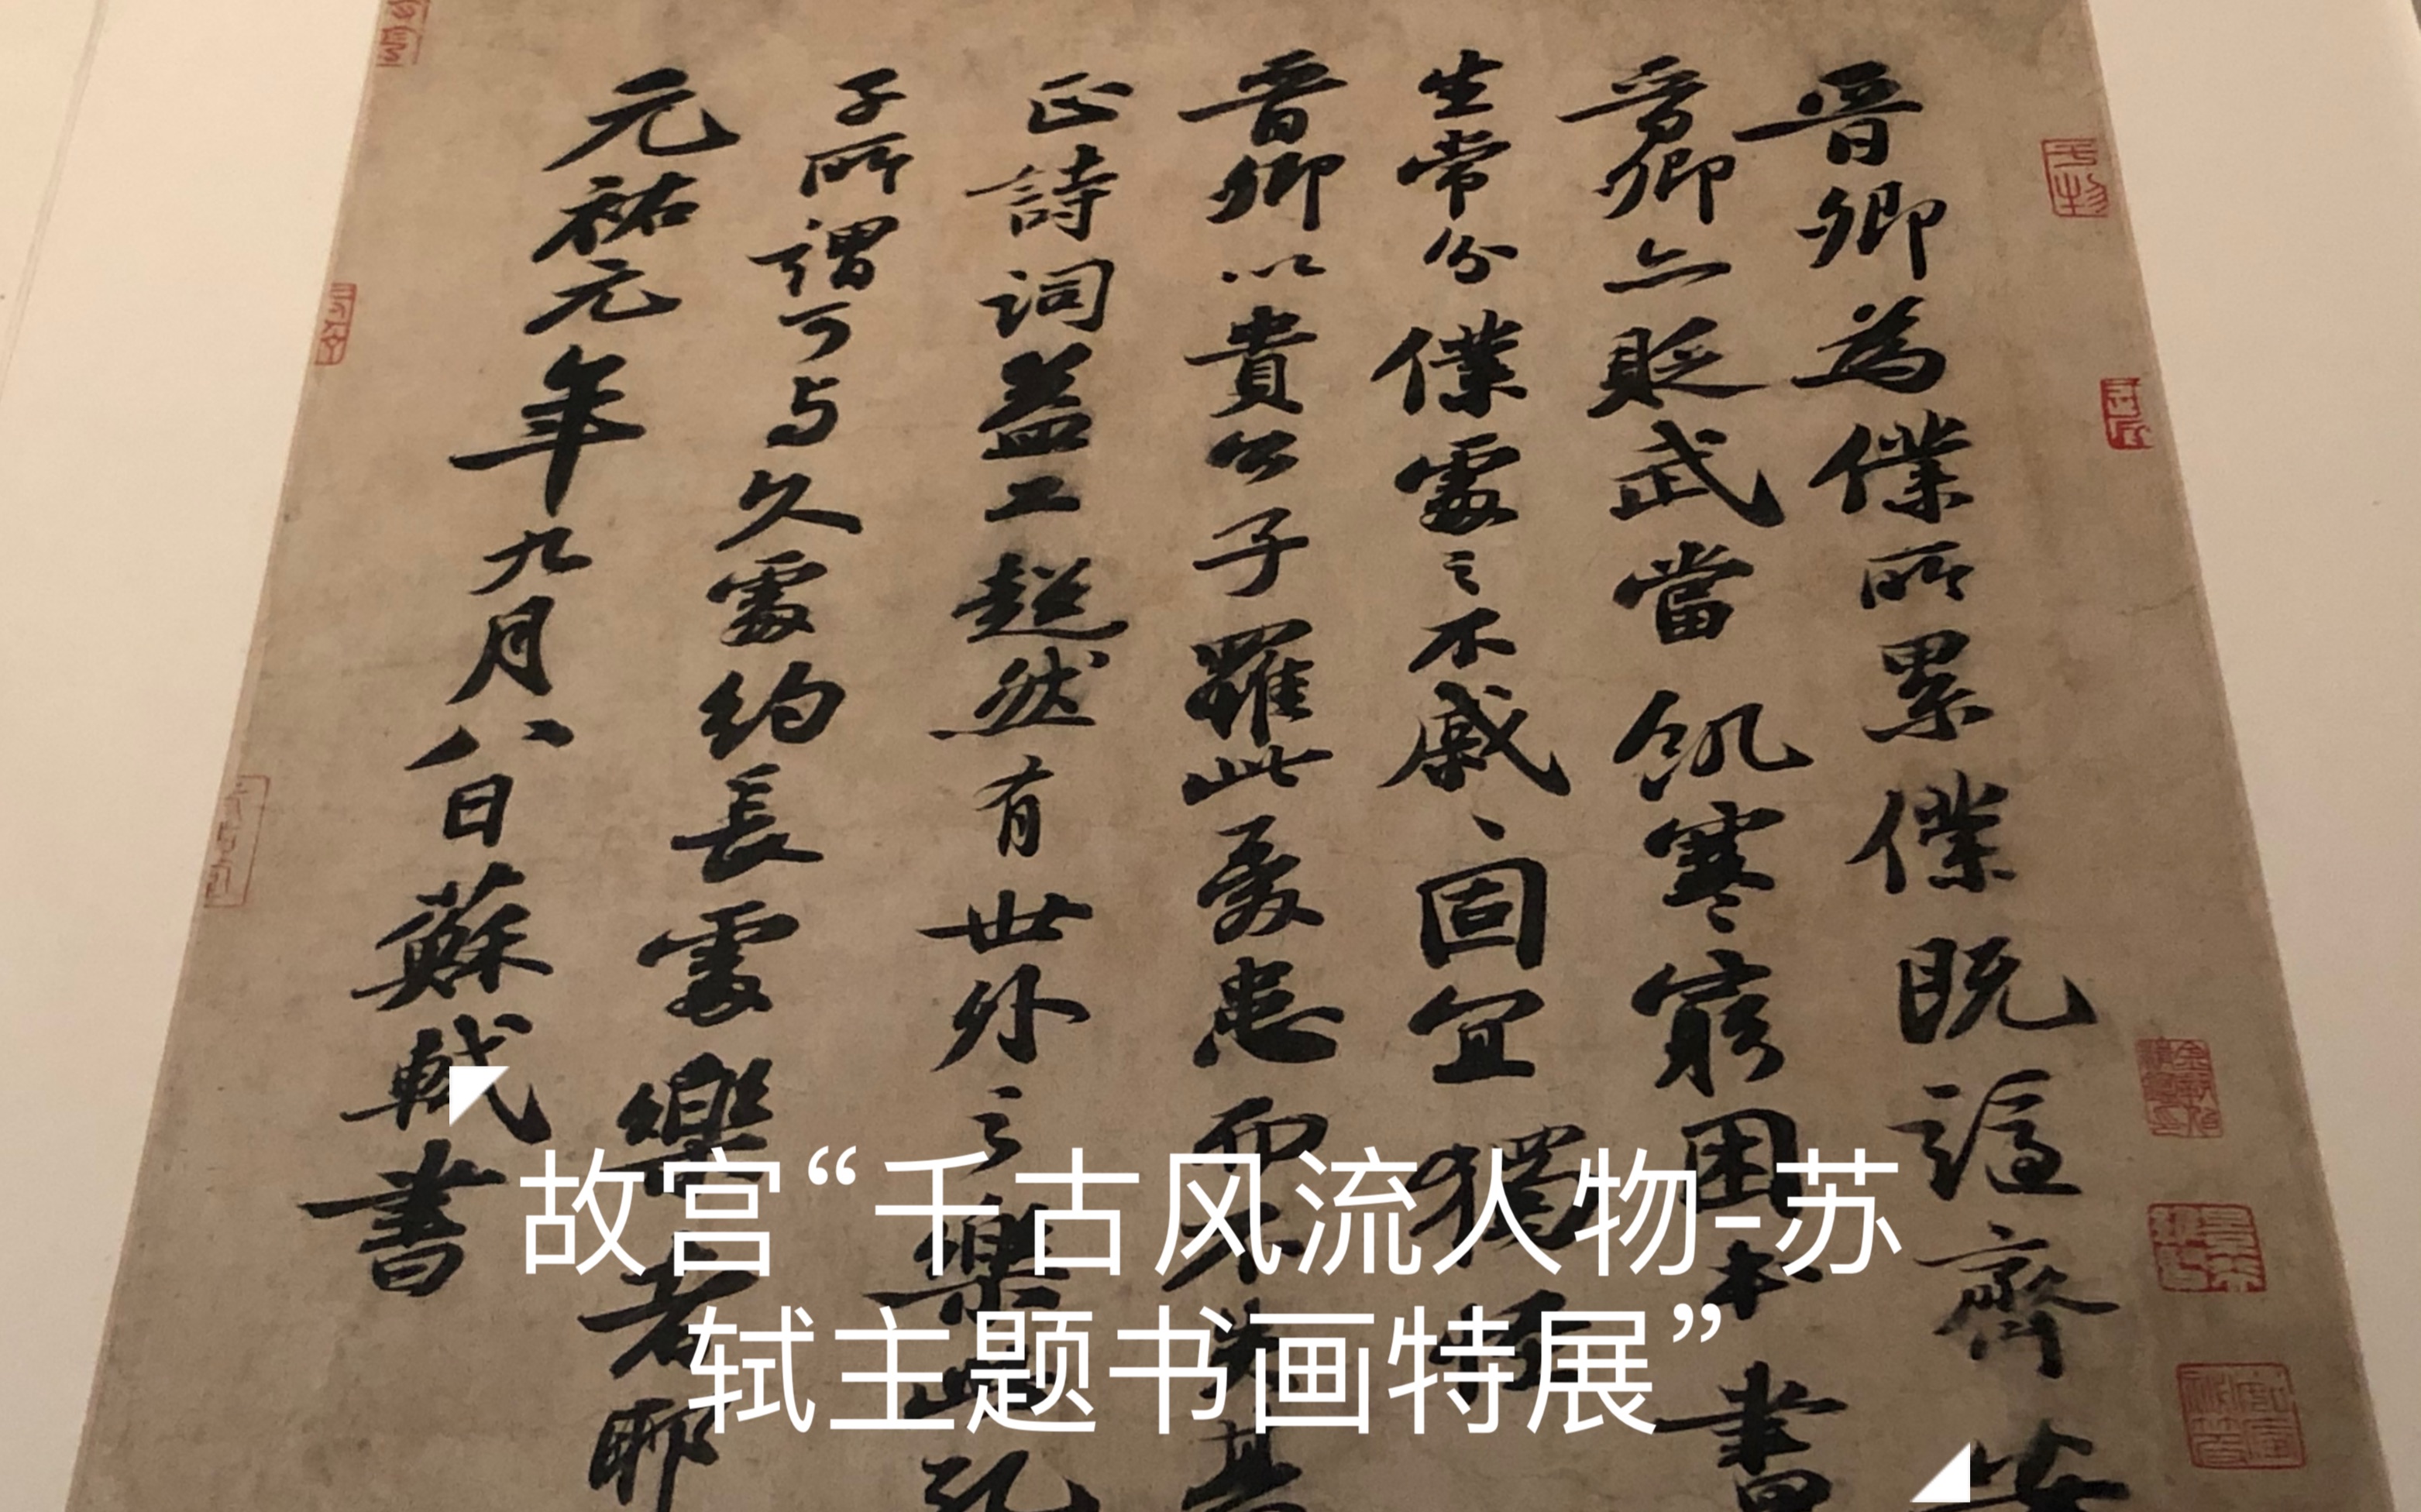 晋卿為僕所累僕既謫齊安
晋卿亦貶武當飢寒窮困本書
生常分僕處之不戚、固宜獨怪
晋卿以貴公子罹此憂患而不失其
正詩詞益工超然有世外之樂此孔
子所謂可与久處約長處樂者耶
元祐元年九月八日蘇軾書
故宫“千古风流人物-苏
轼主题书画特展”